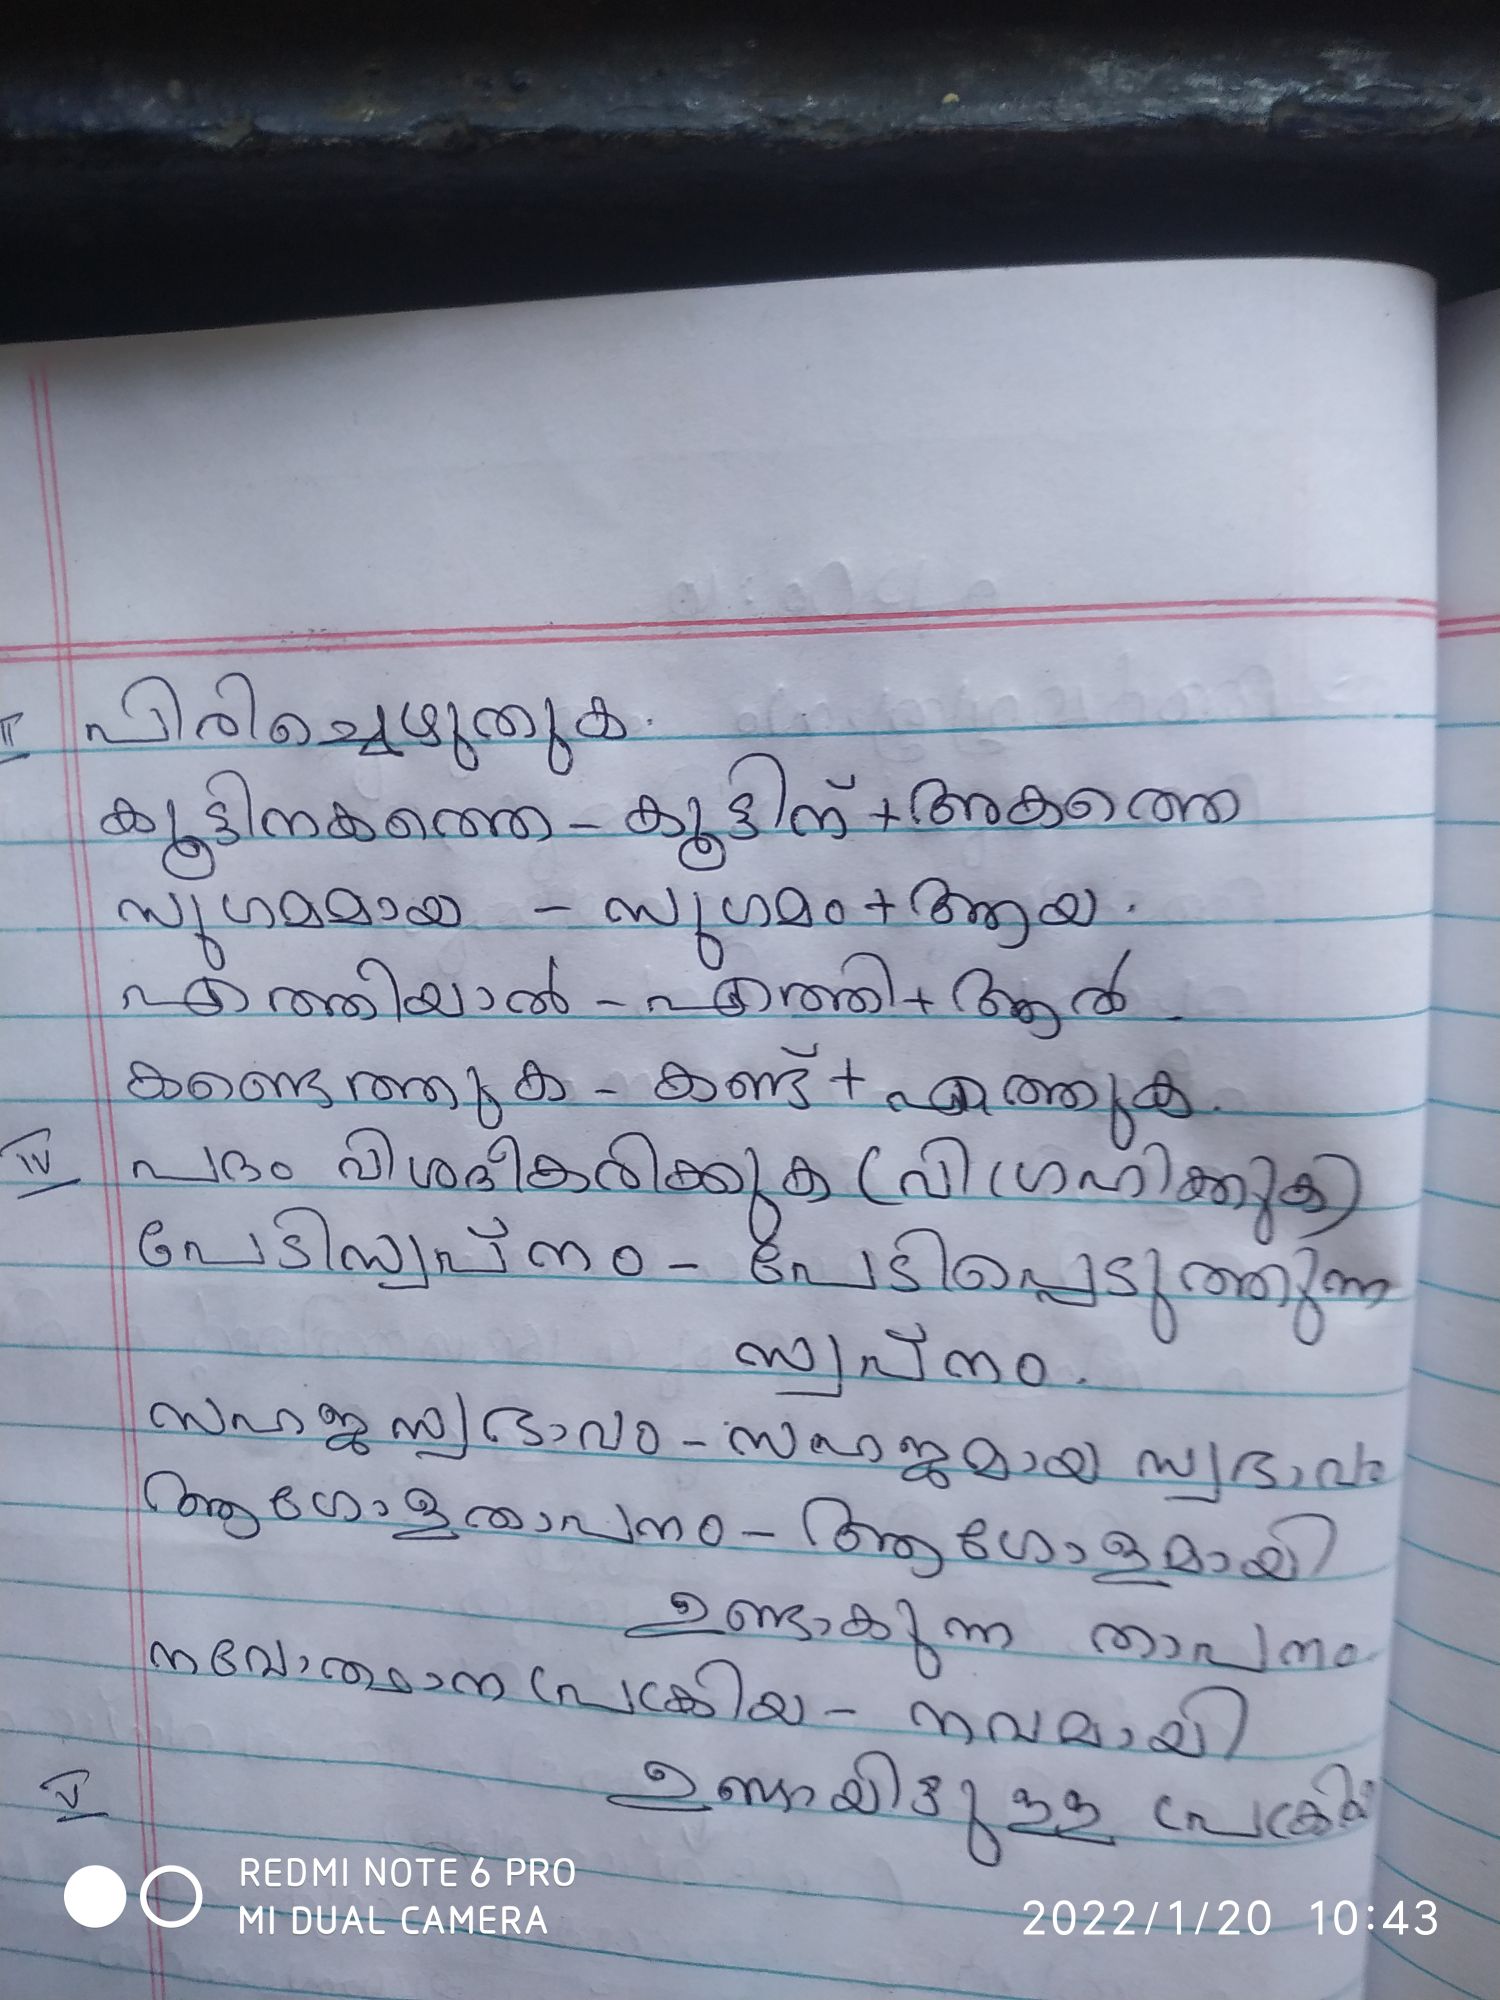 II പിരിച്ചെഴുതുക.
കൂട്ടിനകത്തെ - കൂട്ടിന് + അകത്തെ
സുഗമമായ - സുഗമം + ആയ.
എത്തിയാൽ - എത്തി + ആൽ.
കണ്ടെത്തുക - കണ്ട് + എത്തുക.
IV പദം വിശദീകരിക്കുക (വിഗ്രഹിക്കുക)
പേടിസ്വപ്നം - പേടിപ്പെടുത്തുന്ന
സ്വപ്നം.
സഹജസ്വഭാവം - സഹജമായ സ്വഭാവം
ആഗോളതാപനം - ആഗോളമായി
ഉണ്ടാകുന്ന താപനം.
നവോത്ഥാന പ്രക്രിയ - നവമായി
ഉണ്ടായിട്ടുള്ള പ്രക്രിയ
V
REDMI NOTE 6 PRO
MI DUAL CAMERA
2022/1/20 10:43